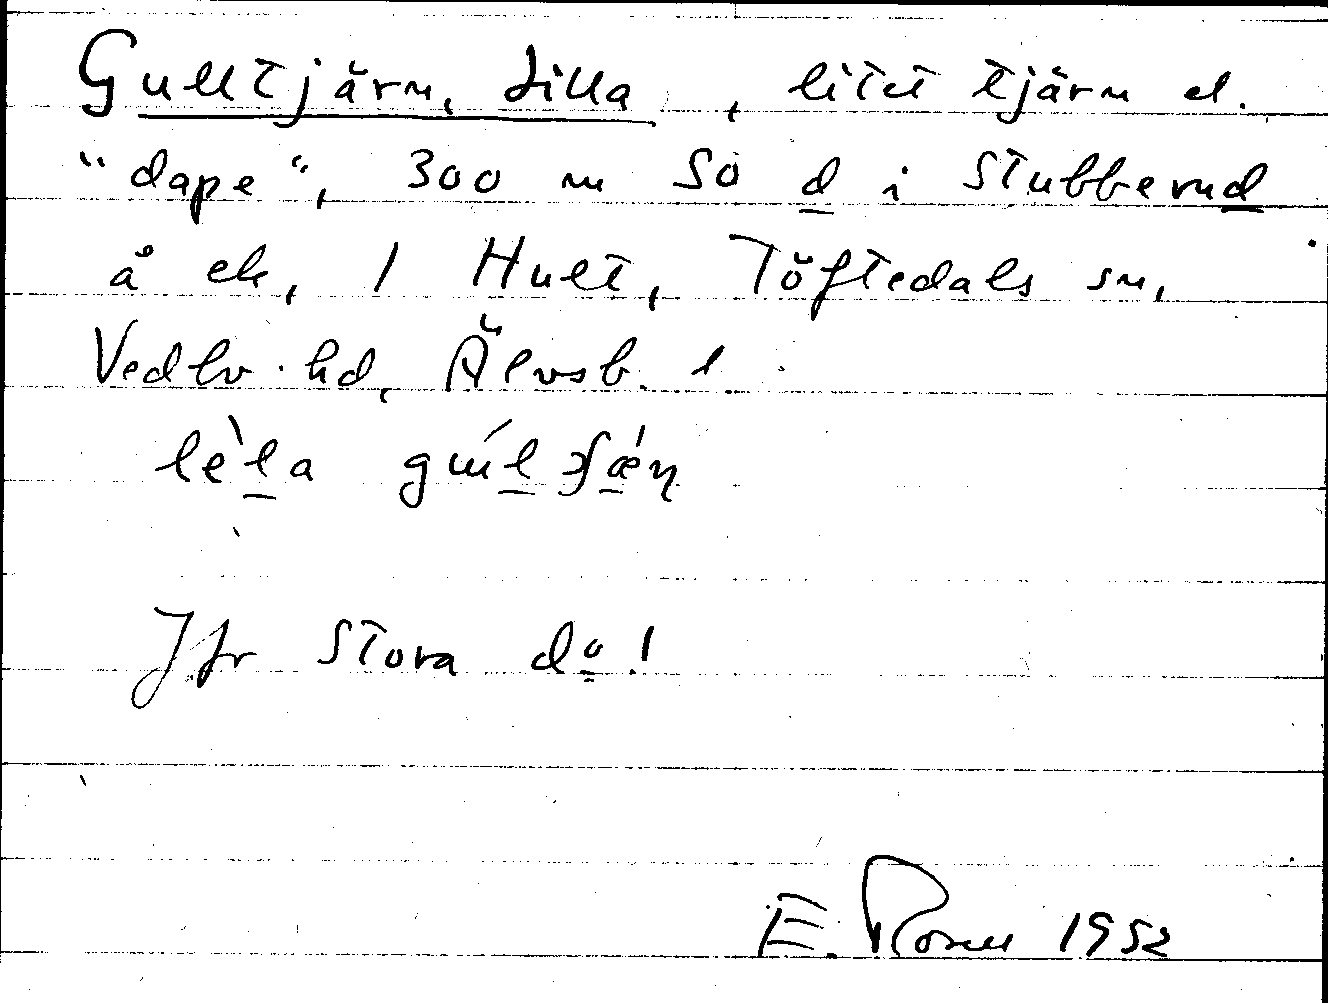 Gulltjärn, Lilla, litet tjärn el.
"dape", 300 m SO d i Stubberud
å ek, 1 Hult, Töftedals sn,
Vedbo hd, Älvsb. l.
Jfr Stora do!
E. Rosell 1952